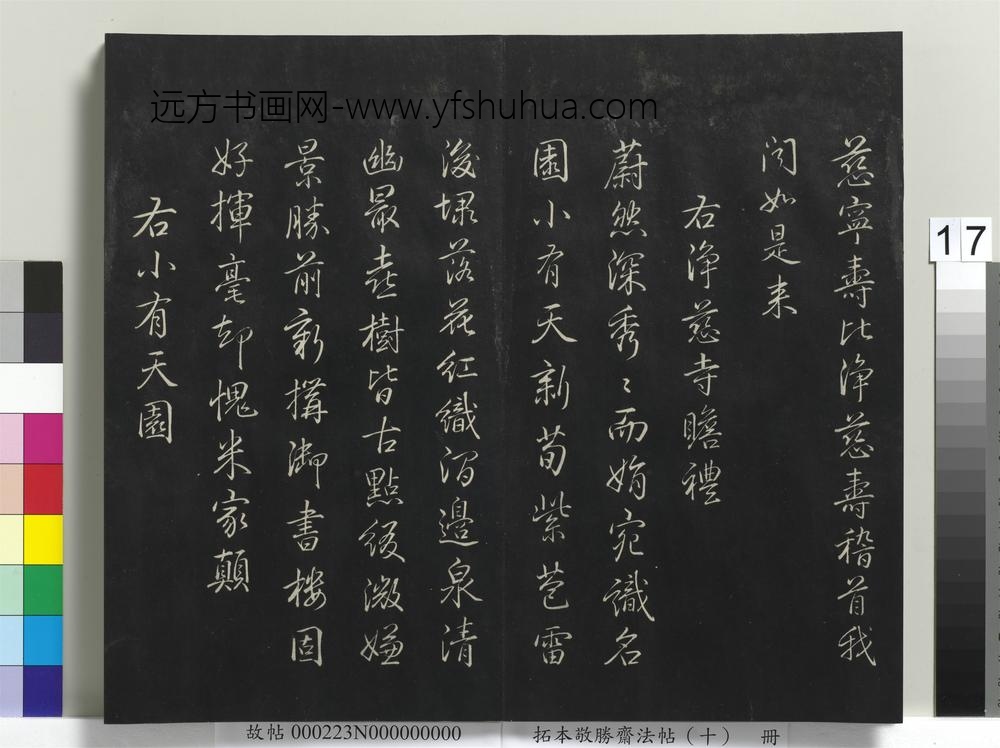 慈寧壽比淨慈壽稽首我
聞如是来
右淨慈寺瞻禮
蔚然深秀秀而娟宛識名
園小有天新荀紫苞雷
後堁落花紅織澗邊泉清
幽最喜樹皆古點綴微嫌
景勝前新搆御書樓固
好揮毫却愧米家顛
右小有天園
远方书画网-www.yfshuhua.com
17
故帖 000223N000000000
拓本敬勝齋法帖（十） 冊